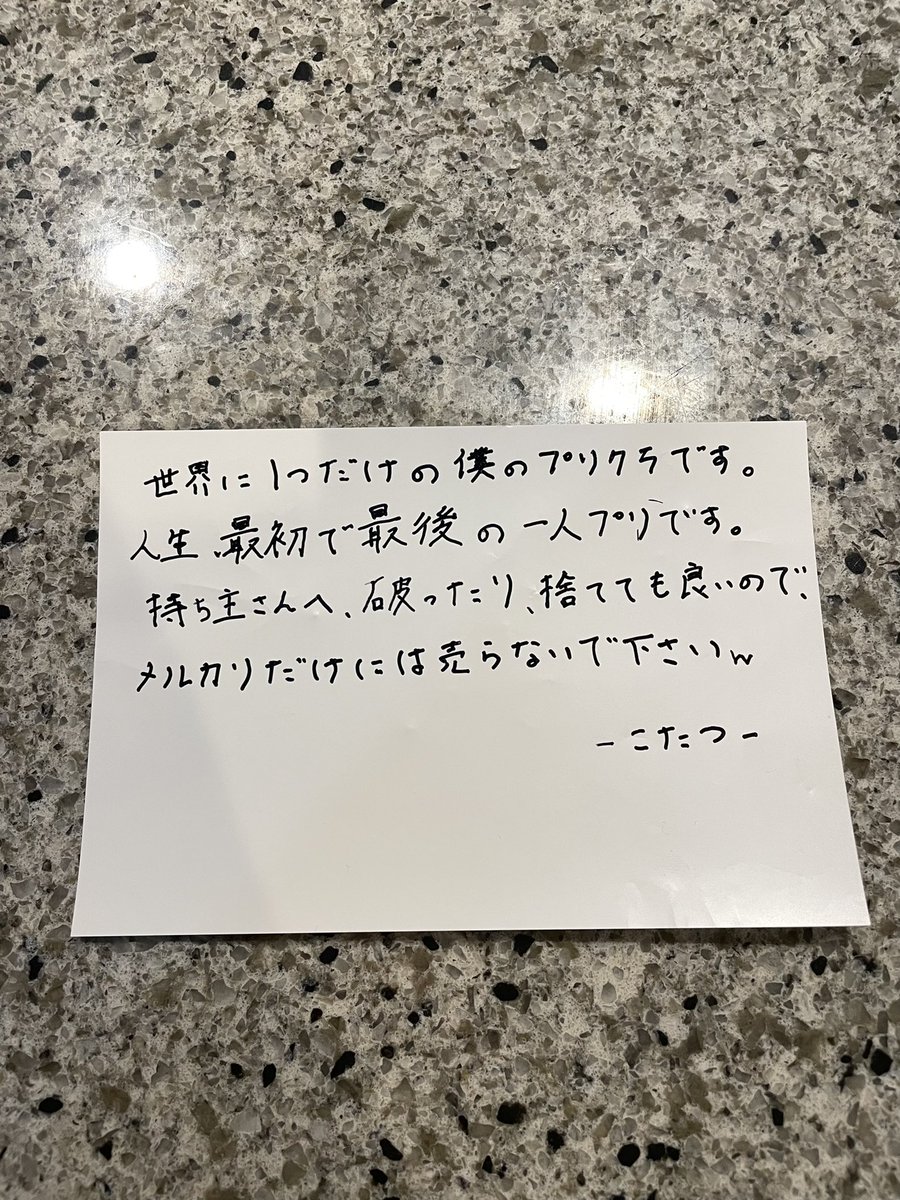 世界に1つだけの僕のプリクラです。
人生、最初で最後の一人プリです。
持ち主さんへ、破ったり、捨てても良いので、
メルカリだけには売らないで下さいw
-こたつ-